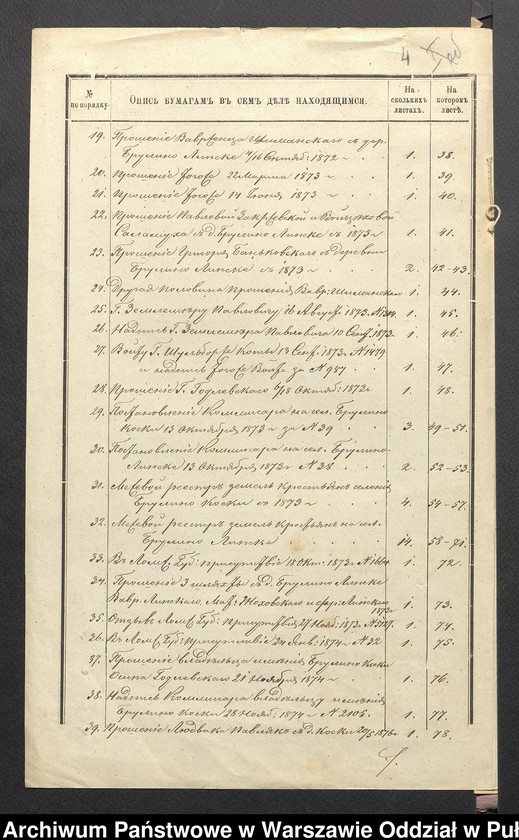 4
№ по порядку.
Опись бумагамъ въ семъ дѣлѣ находящимся.
На сколькихъ листахъ.
На которомъ листѣ.
19. Прошеніе Вавренца Шиманскаго съ дер.
Брулино Липске 4/16 Октяб: 1872 1. 38.
20. Прошеніе 22 Марта 1873 1. 39.
21. Прошеніе 14 Іюня 1873 1. 40.
22. Прошеніе Павловой Закржевской и
съ д. Брулино Липске съ 1873 1. 41.
23. Прошеніе Григорія Баньковскаго съ деревни
Брулино Липске съ 1873 2. 42-43.
24. Другая половина прошенія Вавр: Шиманскаго 1. 44.
25. Г. Землемѣру Павловичу 16 Август 1873. 1. 45.
26. Надпись Г. Землемѣра Павловича 10 Сент. 1873. 1. 46.
27. Войту Г. Шульборзе Коты 13 Сент. 1873 N 1479
и надпись Войта за N 987 1. 47.
28. Прошеніе Г. Годлевскаго 6/18 Октяб: 1872 1. 48.
29. Постановленіе Коммисара на сел. Брулино
Коски 13 Октября 1873 за N 39 3. 49-51.
30. Постановленіе Коммисара на сел. Брулино-
Липске 13 Октября 1873 N 38 2. 52-53.
31. Межевой реестръ земель крестьянъ селенія
Брулино Коски съ 1873 4. 54-57.
32. Межевой реестръ земель крестьянъ на сел.
Брулино Липске 14. 58-71.
33. Въ Ломж. Губ: присутствіе Окт: 1873 1. 72.
34. Прошеніе 3 шляхты съ д. Брулино Липске
Вавр. Липскаго, Мат: Жоховскаго и Фр: Липскаго 1873 1. 73.
35. Отзывъ Ломж. Губ: присутствія 27 Нояб: 1873. 1. 74.
36. Въ Ломж. Губ: присутствіе 24 Янв: 1874 N 32 1. 75.
37. Прошеніе владѣльца имѣнія Брулино Коски
Годлевскаго 21 Ноября 1874 1. 76.
38. Надпись Коммисара владѣльцу имѣнія
Брулино Коски 28 Нояб: 1874 N 2105. 1. 77.
39. Прошеніе Людвика Павлякъ съ д. Коски 1. 78.
Archiwum Państwowe w Warszawie Oddział w Puł